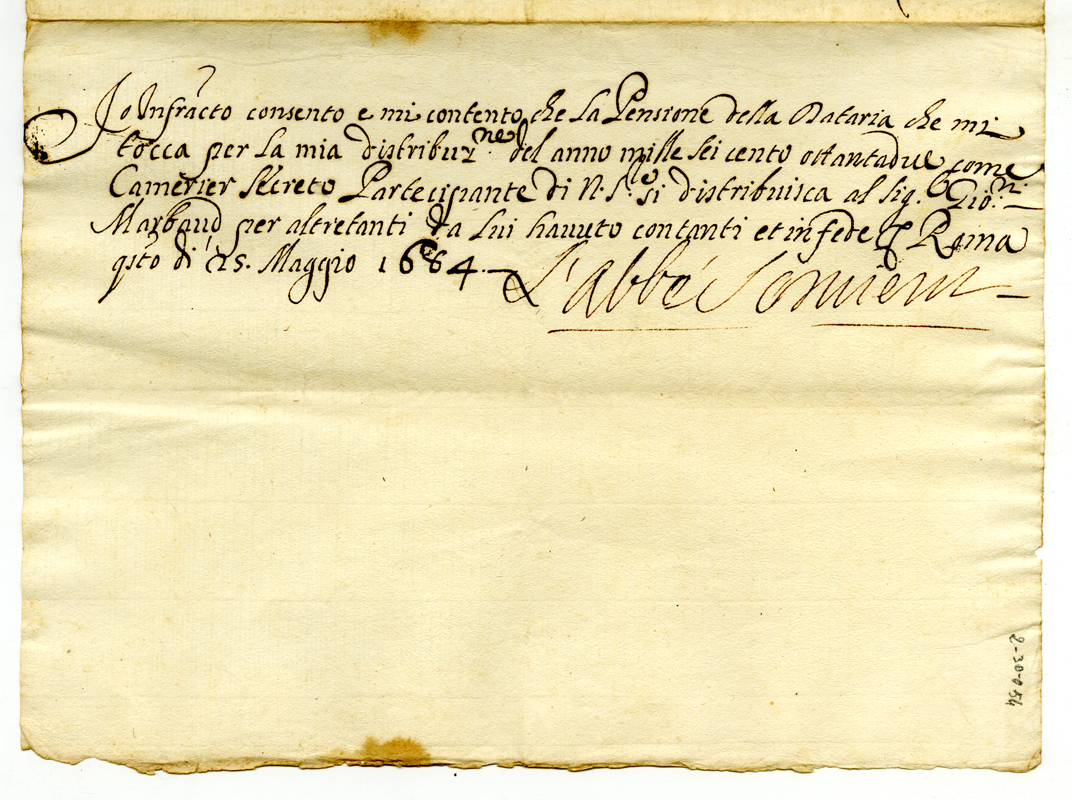 Io Infracto consento e mi contento che la Pensione della Dataria che mi
tocca per la mia distribuz.ne del anno mille sei cento ottantadue come
Camerier secreto Partecipante di N. S.re si distribuisca al sig. Gio.ni
Marbaud per altretanti da lui havuto contanti et in fede Roma
qsto di 15. Maggio 1684.
L'abbé
2-30-054